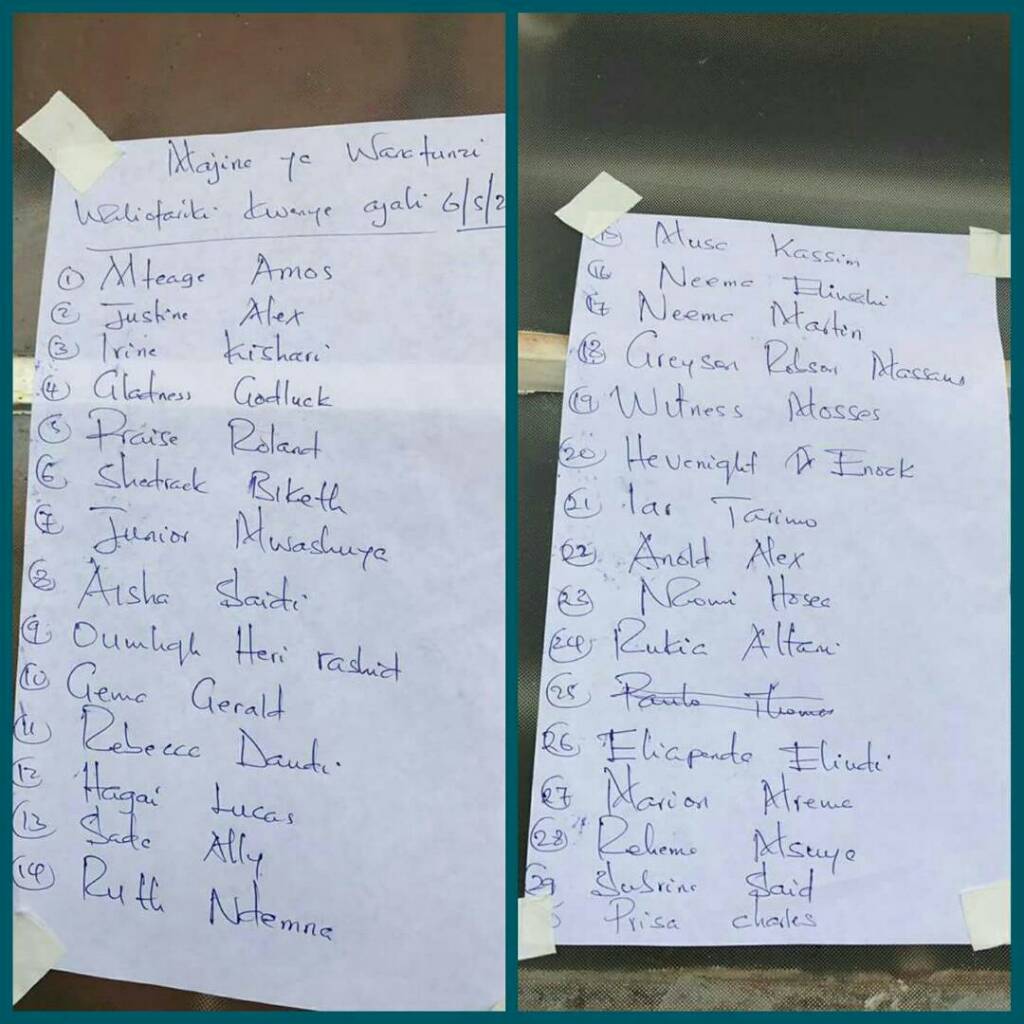 Majina ya Wanafunzi
Waliofariki kwenye ajali 6/5/2
① Mteage Amos
② Justine Alex
③ Irine Kishari
④ Gladness Godluck
⑤ Praise Roland
⑥ Shedrack Biketh
⑦ Junior Mwashuya
⑧ Aisha Saidi
⑨ Heri rashid
⑩ Gema Gerald
⑪ Rebecca Daudi
⑫ Hagai Lucas
⑬ Sada Ally
⑭ Ruth Ndemna
⑮ Musa Kassim
⑯ Neema
⑰ Neema Martin
⑱ Greyson Robson Massawe
⑲ Witness Mosses
⑳ Hevenight Enock
㉑ Iar Tarimo
㉒ Anold Alex
㉓ Naomi Hosea
㉔ Rukia Altani
㉕ Paulo Thomas
㉖ Eliapenda Eliudi
㉗ Marion Mrema
㉘ Rehema Msuya
㉙ Sabrina Said
Prisa charles